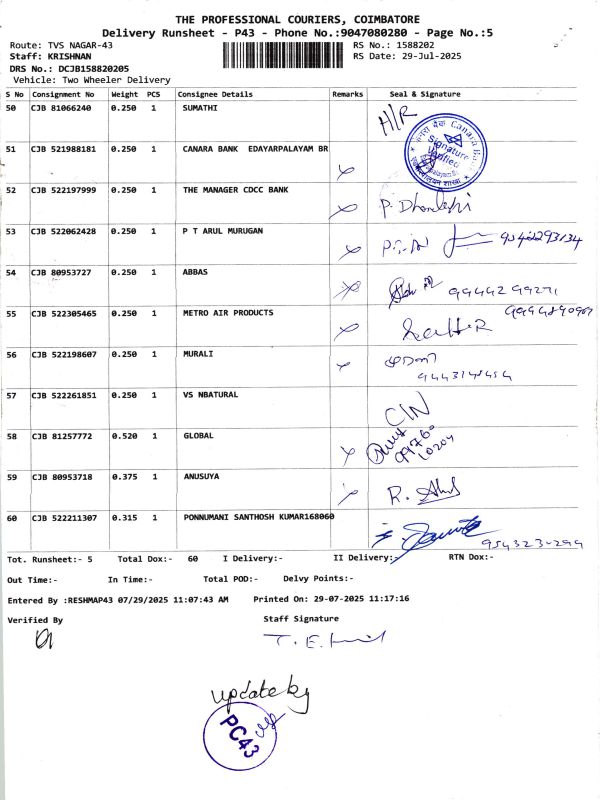 THE PROFESSIONAL COURIERS, COIMBATORE
Delivery Runsheet - P43 - Phone No.:9047080280 - Page No.:5
Route: TVS NAGAR-43 RS No.: 1588202
Staff: KRISHNAN RS Date: 29-Jul-2025
DRS No.: DCJB158820205
Vehicle: Two Wheeler Delivery
S No Consignment No Weight PCS Consignee Details Remarks Seal & Signature
50 CJB 81066240 0.250 1 SUMATHI H/R
Canara Bank
Signature Verified
51 CJB 521988181 0.250 1 CANARA BANK EDAYARPALAYAM BR
52 CJB 522197999 0.250 1 THE MANAGER CDCC BANK
53 CJB 522062428 0.250 1 P T ARUL MURUGAN
54 CJB 80953727 0.250 1 ABBAS
55 CJB 522305465 0.250 1 METRO AIR PRODUCTS
56 CJB 522198607 0.250 1 MURALI
57 CJB 522261851 0.250 1 VS NBATURAL C/N
58 CJB 81257772 0.520 1 GLOBAL
59 CJB 80953718 0.375 1 ANUSUYA
60 CJB 522211307 0.315 1 PONNUMANI SANTHOSH KUMAR168060
Tot. Runsheet:- 5 Total Dox:- 60 I Delivery:- II Delivery:- RTN Dox:-
Out Time:- In Time:- Total POD:- Delvy Points:-
Entered By :RESHMAP43 07/29/2025 11:07:43 AM Printed On: 29-07-2025 11:17:16
Verified By Staff Signature
update by
PC43